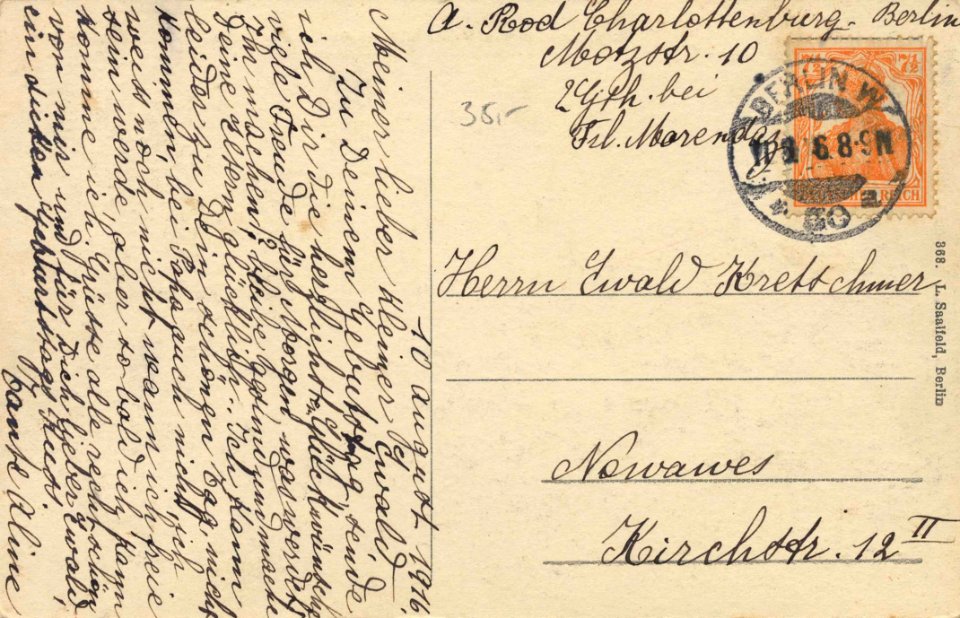 A. Rod Charlottenburg - Berlin
Motzstr. 10
2 Gth. bei
Frl. Marendaz
35.-
7½ 7½
BERLIN W
8-9N
30
Herrn Ewald Kretschmer
Nowawes
Kirchstr. 12 II
368. L. Saalfeld, Berlin
10 August 1916
Meiner lieber kleiner Ewald
Zu Deinem Geburtstag, sende
ich Dir die herzlichsten Glückwünsche
viele Freude für Morgen was werdet
Ihr machen? bleibe gesund und mache
Deine Eltern glücklich. Ich kann
leider zu Dein schönen Tag, nicht
kommen, bei Prhaguch nicht, ich
weis noch nicht wann ich freie
sein werde aber so bald ich kann
komme ich. Grüsse alle recht schön
von mir und für Dich lieber Ewald,
ein dicken Geburtstags Kuss
Tante Aline